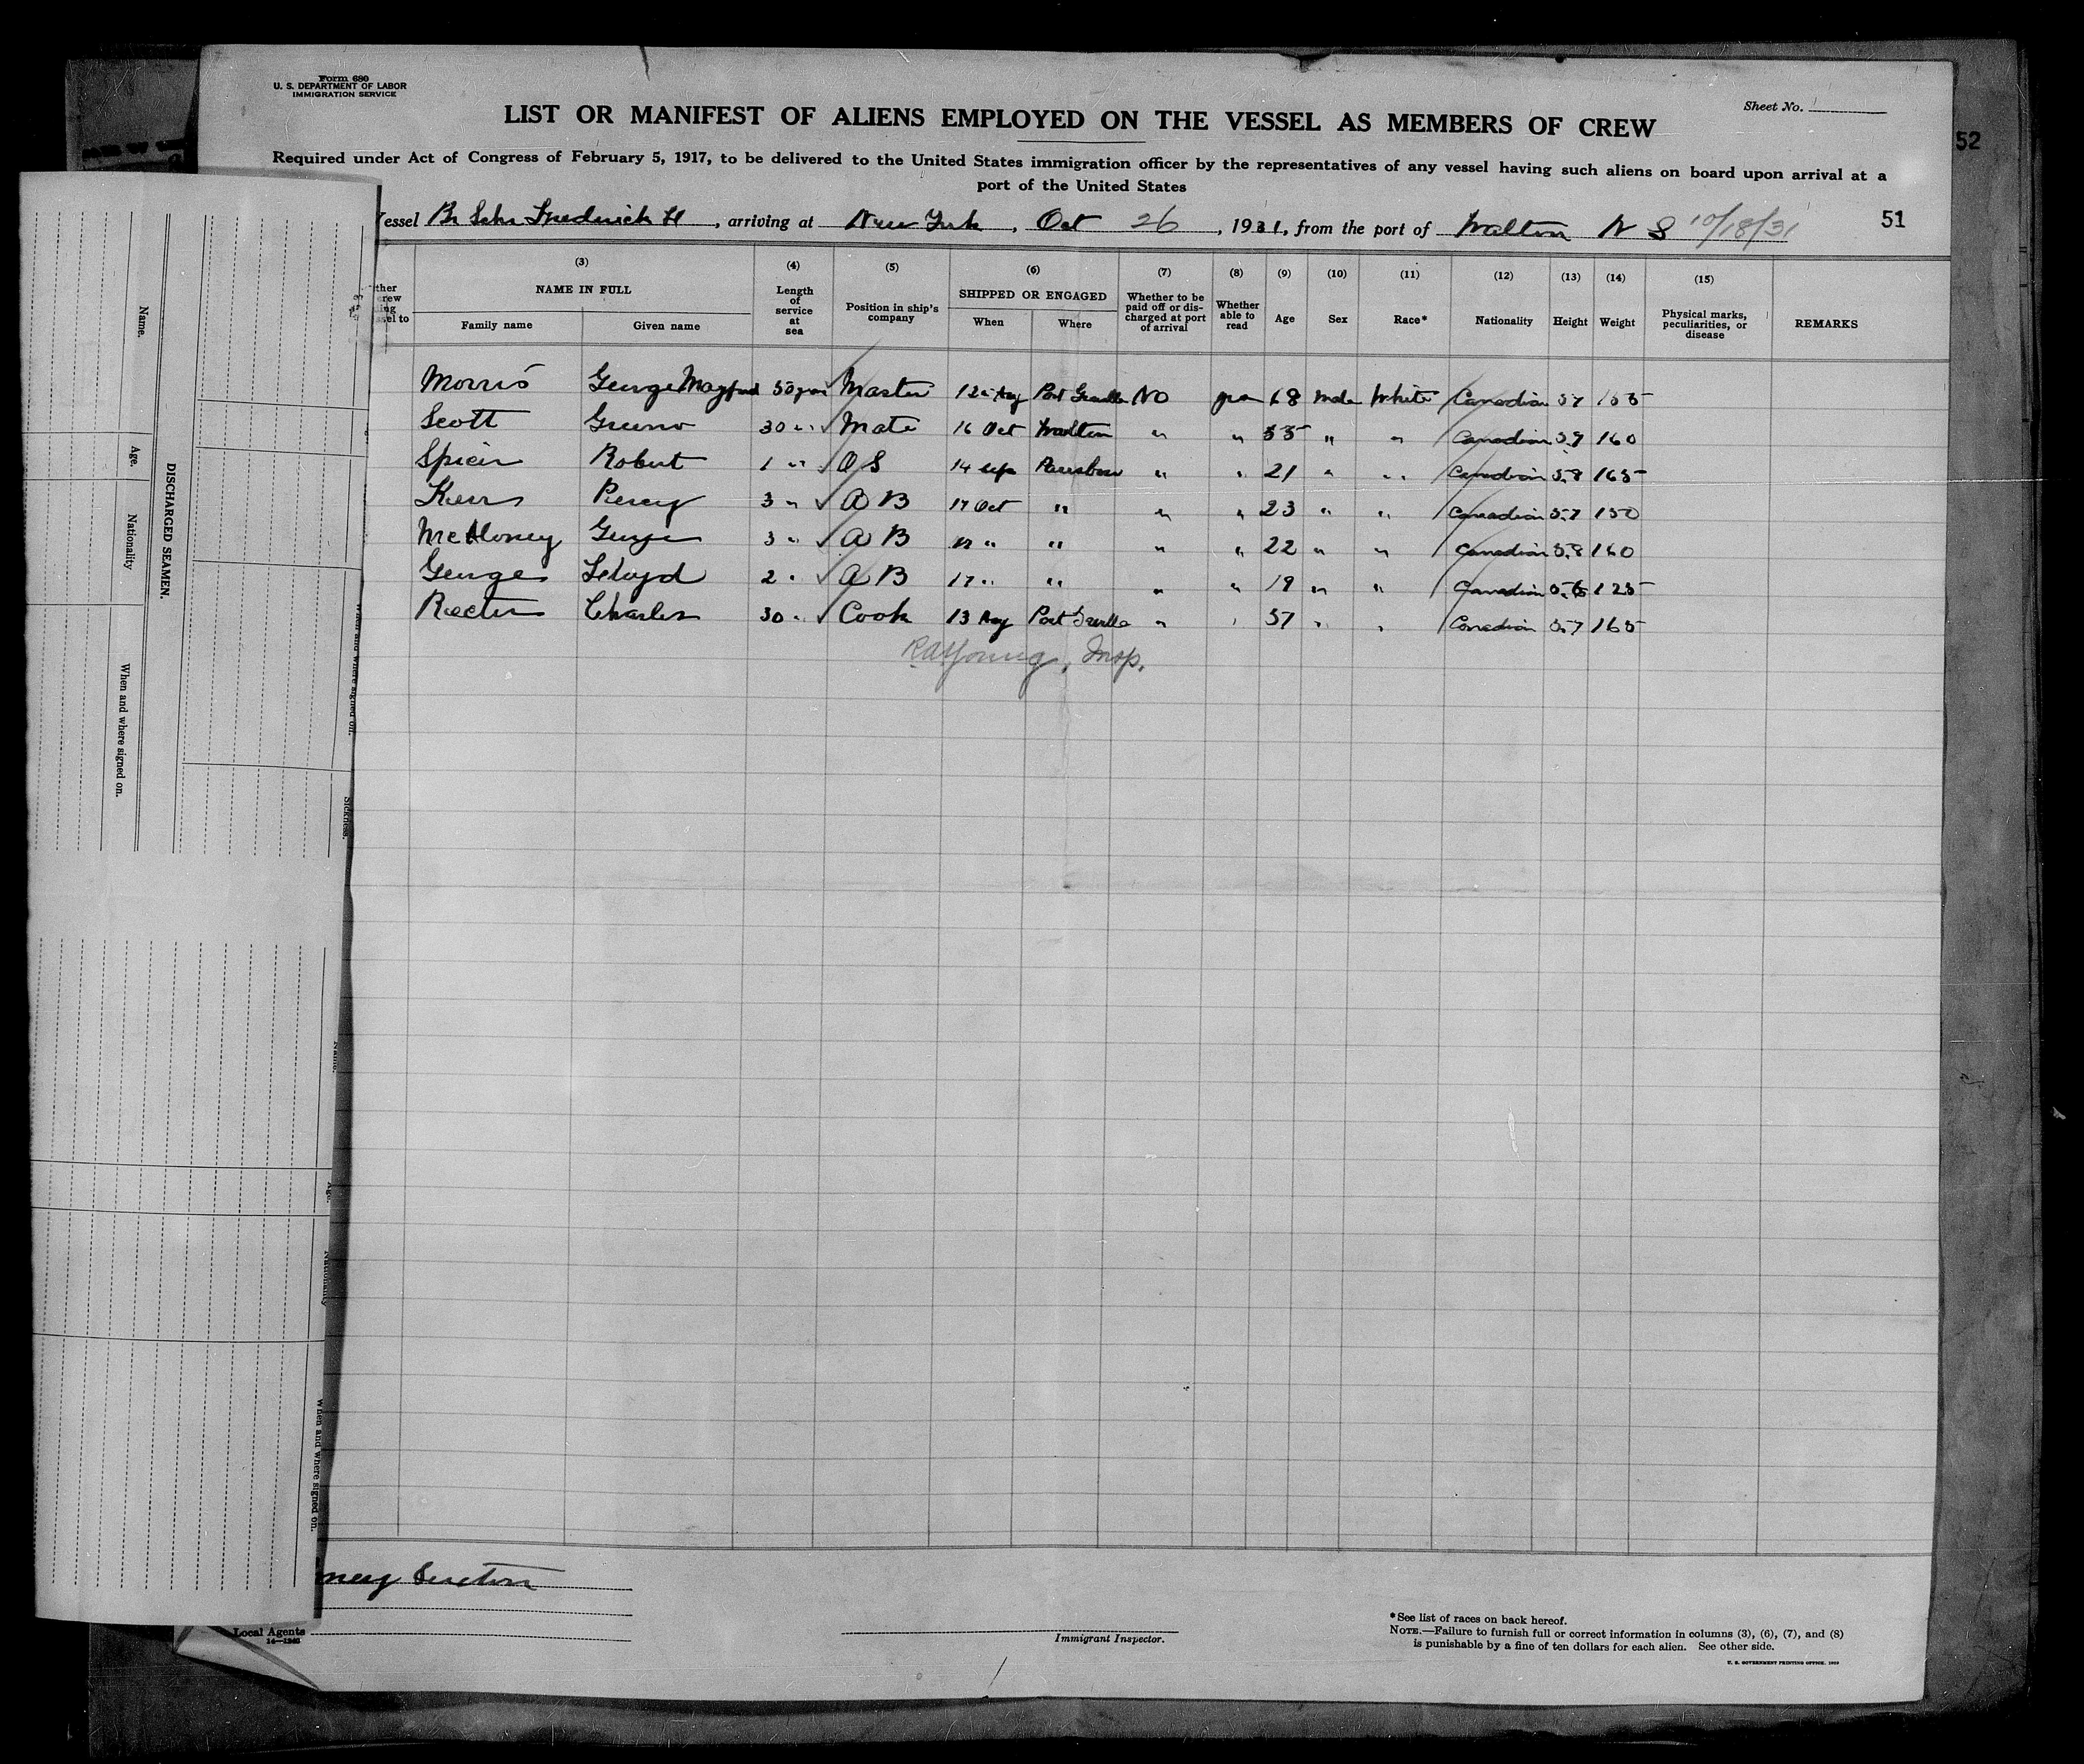 Form 680
U. S. DEPARTMENT OF LABOR
IMMIGRATION SERVICE
Sheet No.
LIST OR MANIFEST OF ALIENS EMPLOYED ON THE VESSEL AS MEMBERS OF CREW
52
Required under Act of Congress of February 5, 1917, to be delivered to the United States immigration officer by the representatives of any vessel having such aliens on board upon arrival at a
port of the United States
essel Br Schr Frederick H, arriving at New York, Oct 26, 1931, from the port of Walton N S 10/18/31
51
(3) (4) (5) (6) (7) (8) (9) (10) (11) (12) (13) (14) (15)
NAME IN FULL
Family name Given name
Length of service at sea
Position in ship's company
SHIPPED OR ENGAGED
When Where
Whether to be paid off or discharged at port of arrival
Whether able to read
Age Sex Race* Nationality Height Weight
Physical marks, peculiarities, or disease
REMARKS
Morris George 50 Master 12 Aug Port Greville No 68 Male White Canadian 5.7 155
Scott 30 " Mate 16 Oct Walton " " 55 " " Canadian 5.7 160
Spicer Robert 1 " O S 14 Sep Parrsboro " " 21 " " Canadian 5.8 165
Kerr Percy 3 " A B 17 Oct " " " 23 " " Canadian 5.7 150
George 3 " A B 17 " " " " 22 " " Canadian 5.8 160
George Lloyd 2 " A B 17 " " " " 19 " " Canadian 5.6 125
Charles 30 " Cook 13 Aug Port Greville " " 57 " " Canadian 5.7 165
R A Young, Insp.
Name.
Age.
Nationality
When and where signed on.
DISCHARGED SEAMEN.
Sickness.
Name.
Age.
Nationality
When and where signed on.
Local Agents
14—1240
Immigrant Inspector.
*See list of races on back hereof.
NOTE.—Failure to furnish full or correct information in columns (3), (6), (7), and (8)
is punishable by a fine of ten dollars for each alien. See other side.
U. S. GOVERNMENT PRINTING OFFICE